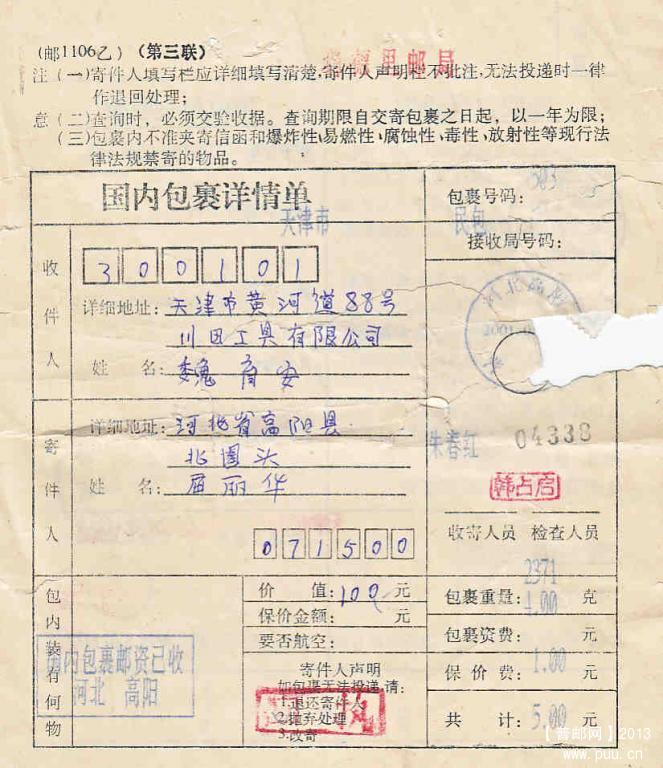 (邮1106乙) (第三联)
邮局
注 (一)寄件人填写栏应详细填写清楚,寄件人声明栏不批注,无法投递时一律
作退回处理;
意 (二)查询时,必须交验收据。查询期限自交寄包裹之日起,以一年为限;
(三)包裹内不准夹寄信函和爆炸性、易燃性、腐蚀性、毒性、放射性等现行法
律法规禁寄的物品。
国内包裹详情单
天津市
包裹号码:
民包
接收局号码:
收件人
300101
详细地址: 天津市黄河道88号
川田工具有限公司
姓 名: 魏育安
河北高阳
2001
寄件人
详细地址: 河北省高阳县
北圈头
姓 名: 屈丽华
071500
朱春红 04338
韩占启
收寄人员 检查人员
包内装有何物
国内包裹邮资已收
河北 高阳
价 值: 100 元
保价金额: 元
要否航空:
寄件人声明
如包裹无法投递,请:
1.退还寄件人
2.抛弃处理
3.改寄
2371
包裹重量: 克
4.00
包裹资费: 元
保 价 费: 1.00 元
共 计: 5.00 元
【普邮网】2013
www.puu.cn